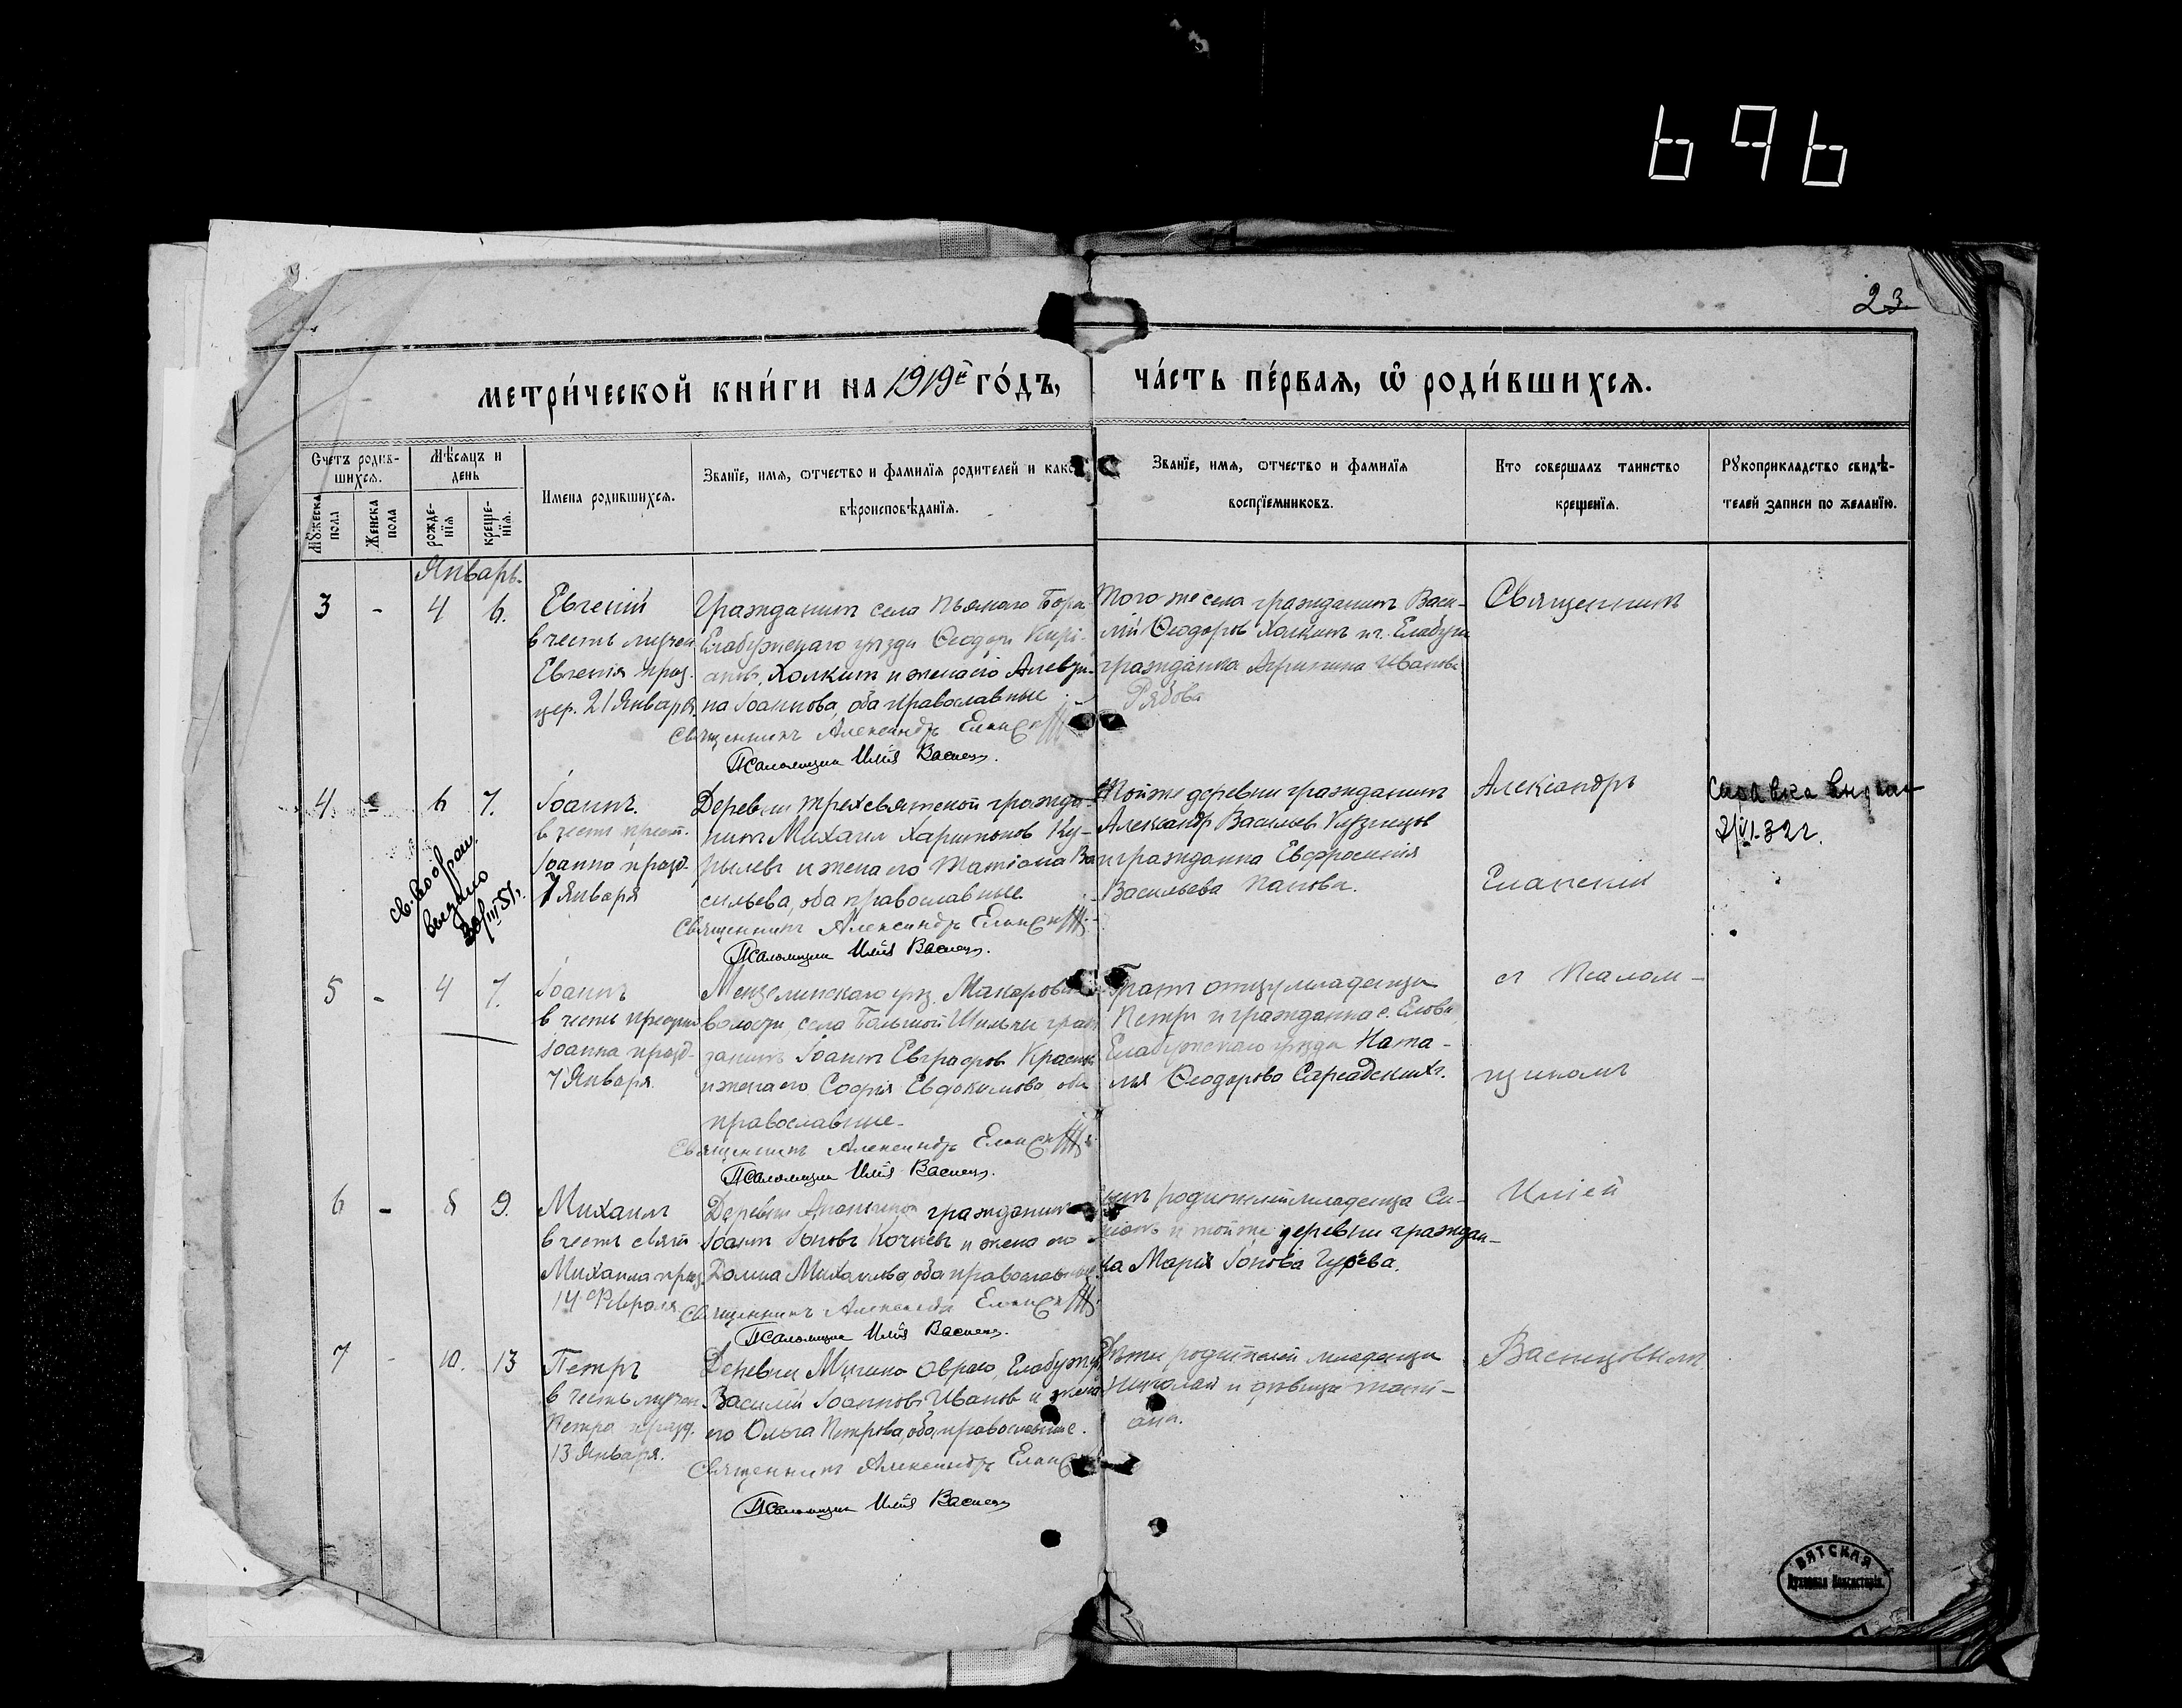 696
23
метри́ческой кни́ги на 1919й го́дъ, ча́сть пе́рвая, ѡ҆ роди́вшихся.
Счетъ родив-
шихся.
Мꙋжеска пола
Женска пола
Мѣсяцъ и день
рожде-
нїя
креще-
нїя.
Имена родившихся.
Званїе, имя, ѡтчество и фамилїя родителей и како
вѣроисповѣданїя.
Званїе, имя, ѡтчество и фамилїя
воспрїемниковъ.
Кто совершалъ таинство
крещенїя.
Рꙋкоприкладство свидѣ-
телей записи по желанїю.
Январь.
3 - 4 6.
Евгений
в честь мучен.
Евгения праз.
21 Января.
Гражданин села Пьяного Бора
Елабужского уезда Феодор Кири-
анов. Холкин и жена его Алевти-
на Иоаннова, оба православные
Священникъ Александръ Еланск
Псаломщик Илия Васнец.
Того же села гражданин Васи-
лий Феодоров Холкин и г. Елабуги
гражданка Агрипина Иванова
Рябова
Священник
4 - 6 7.
Иоаннъ.
в честь
Иоанна празд.
7 Января
св. во
выдано
30/III 51.
Деревни Трехсвятской гражда-
нин Михаил Харитонов Ку-
рылев и жена его Татиана Ва
сильева, оба православные
Священникъ Александръ Еланск
Псаломщик Илия Васнец.
Той же деревни гражданин
Александр Васильев Кузнецов
и гражданка Евфросиния
Васильева Панова.
Александръ
Еланский
Справка выдана
2/VI-32 г.
5 - 4 7.
Иоаннъ
в честь
Иоанна празд-
7 Января.
Мензелинского уез. Макаровс
волости, села Большой Шильны граж
данинъ Иоанн Евграфов
и жена его София Евдокимова, оба
православные.
Священникъ Александръ Еланск
Псаломщик Илия Васнец.
Брат отцу младенца
Петр и гражданка с. Елова
Елабужского уезда Ната-
лия Феодорова Сарсадских.
с Псалом-
щиком
6 - 8 9.
Михаил
в честь свят.
Михаила праз.
14 Февраля
Деревни Ананьина гражданин
Иоанн Ионовъ Кочнев и жена его
Домна Михайлова, оба православные.
Священникъ Александръ Еланск
Псаломщик Илия Васнец.
родителей младенца Си-
и той же деревни граждан-
ка Мария Ионова Гурева.
Илией
7 - 10. 13
Петръ
в честь мучен.
Петра празд.
13 Января.
Деревни Мягина Оврага, Елабуж. у.
Василий Иоаннов Иванов и жена
его Ольга Петрова, оба православные.
Священникъ Александръ Еланск
Псаломщик Илия Васнец
Дети родителей младенца
Николай и девица Тати-
ана.
Васнецовым
ВЯТСКАЯ
Духовная Консисторія.